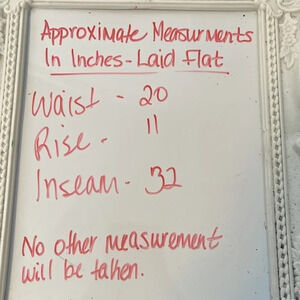 Approximate Measurments
In Inches - Laid Flat
Waist - 20
Rise - 11
Inseam - 32
No other measurement
will be taken.